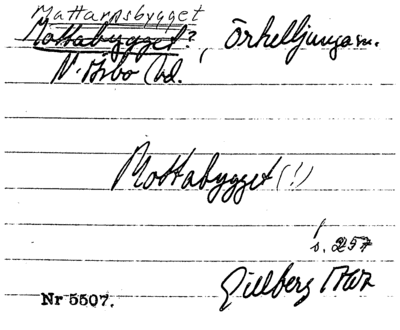 Mattarpsbygget
Mottabygget?, Örkelljunga sn.
N. Åsbo hd.
Mottabygget (!)
s. 257
Gillberg 1767
Nr 5507.